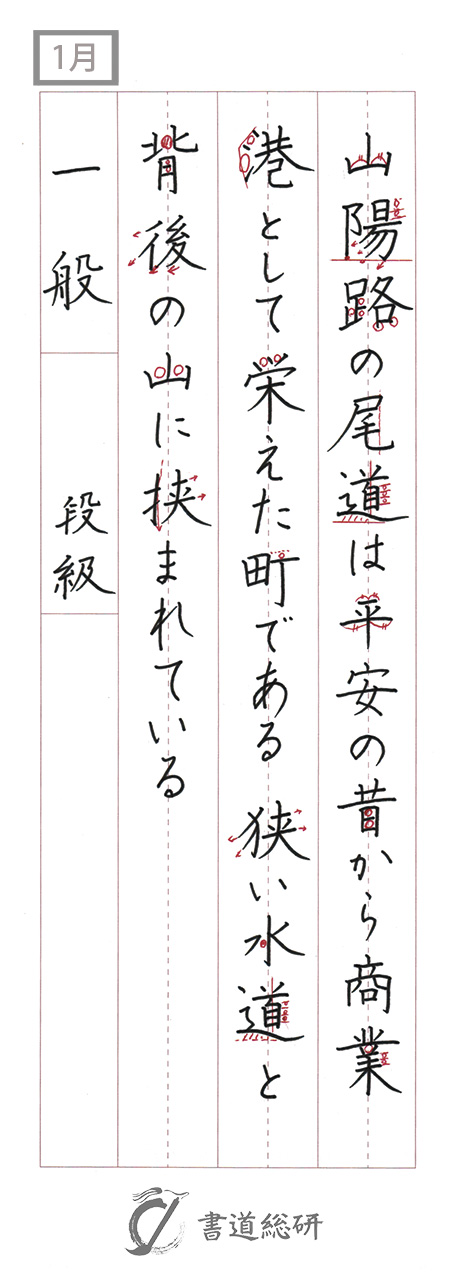 1月
山陽路の尾道は平安の昔から商業
港として栄えた町である 狭い水道と
背後の山に挟まれている
一般
段級
書道総研